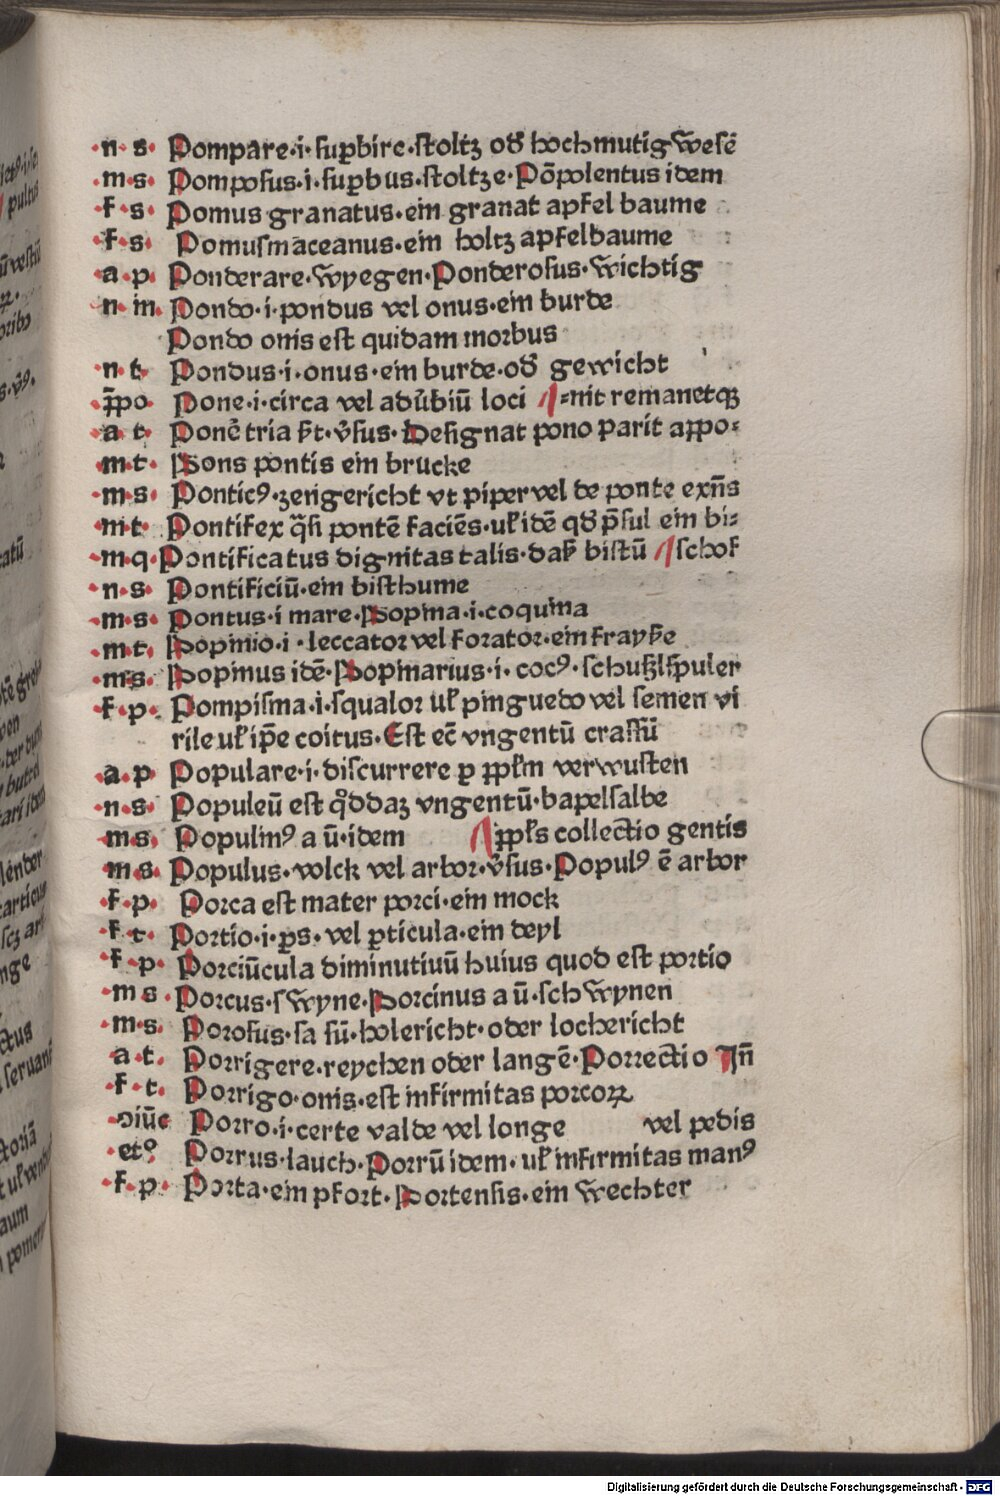 ·n· s· Pompare·i·suꝑbire·stoltz od̕ hochmutig wesē
·m·s· Pomposus·i·suꝑbus·stoltze·Pōpolentus idem
·f·s· Pomus granatus·ein granat apfel baume
·f·s· Pomusmaceanus·ein holtz apfelbaume
·a·p· Ponderare·wyegen·Ponderosus·wichtig
·n·m· Pondo·i·pondus vel onus·ein burde
Pondo onis est quidam morbus
·n·t· Pondus·i·onus·ein burde·od̕ gewicht
p̄po· Pone·i·circa vel adūbiū loci ⸗nit remanetqꝫ
·a·t· Ponē tria s̄t·v̄sus·Designat pono parit appo⸗
·m·t· Pons pontis ein brucke
·m·s· Ponticꝰ·zengericht vt piper vel de ponte exn̄s
·m·t· Pontifex q̄si pontē faciēs·uľ idē qd̕ p̄sul ein bi⸗
·m·q· Pontificatus dignitas talis·daß bistū schof
·n·s· Pontificiū·ein bisthume
·m·s· Pontus·i mare·Popina·i·coquina
·m·t· Popinio·i·leccator vel forator·ein frayße
·m·s· Popinus idē·Popinarius·i·cocꝰ·schußlspuler
·f·p· Pompisma·i·squalor uľ pinguedo vel semen vi
rile uľ ip̄e coitus·Est ec̄ vngentū crassū
·a·p· Populare·i·discurrere ꝑ ppľm verwusten
·n·s· Populeū est qd̕daz vngentū·bapelsalbe
·m·s· Populinꝰ a ū·idem ppľs collectio gentis
·m·s· Populus·volck vel arbor·v̄sus·Populꝰ ē arbor
·f·p· Porca est mater porci·ein mock
·f·t· Portio·i·ꝑs·vel ꝑticula·ein deyl
·f·p· Porciūcula diminutiuū huius quod est portio
·m·s· Porcus·swyne·Porcinus a ū·schwynen
·m·s· Porosus·sa sū·holericht·oder lochericht
·a·t· Porrigere·reychen oder langē·Porrectio Jn̄
·f·t· Porrigo·onis·est infirmitas porcoꝝ
Porro·i·certe valde vel longe vel pedis
·etꝰ Porrus·lauch·Porrū idem·uľ infirmitas manꝰ
·f·p· Porta·ein pfort·Portensis·ein wechter
Digitalisierung gefördert durch die Deutsche Forschungsgemeinschaft - DFG